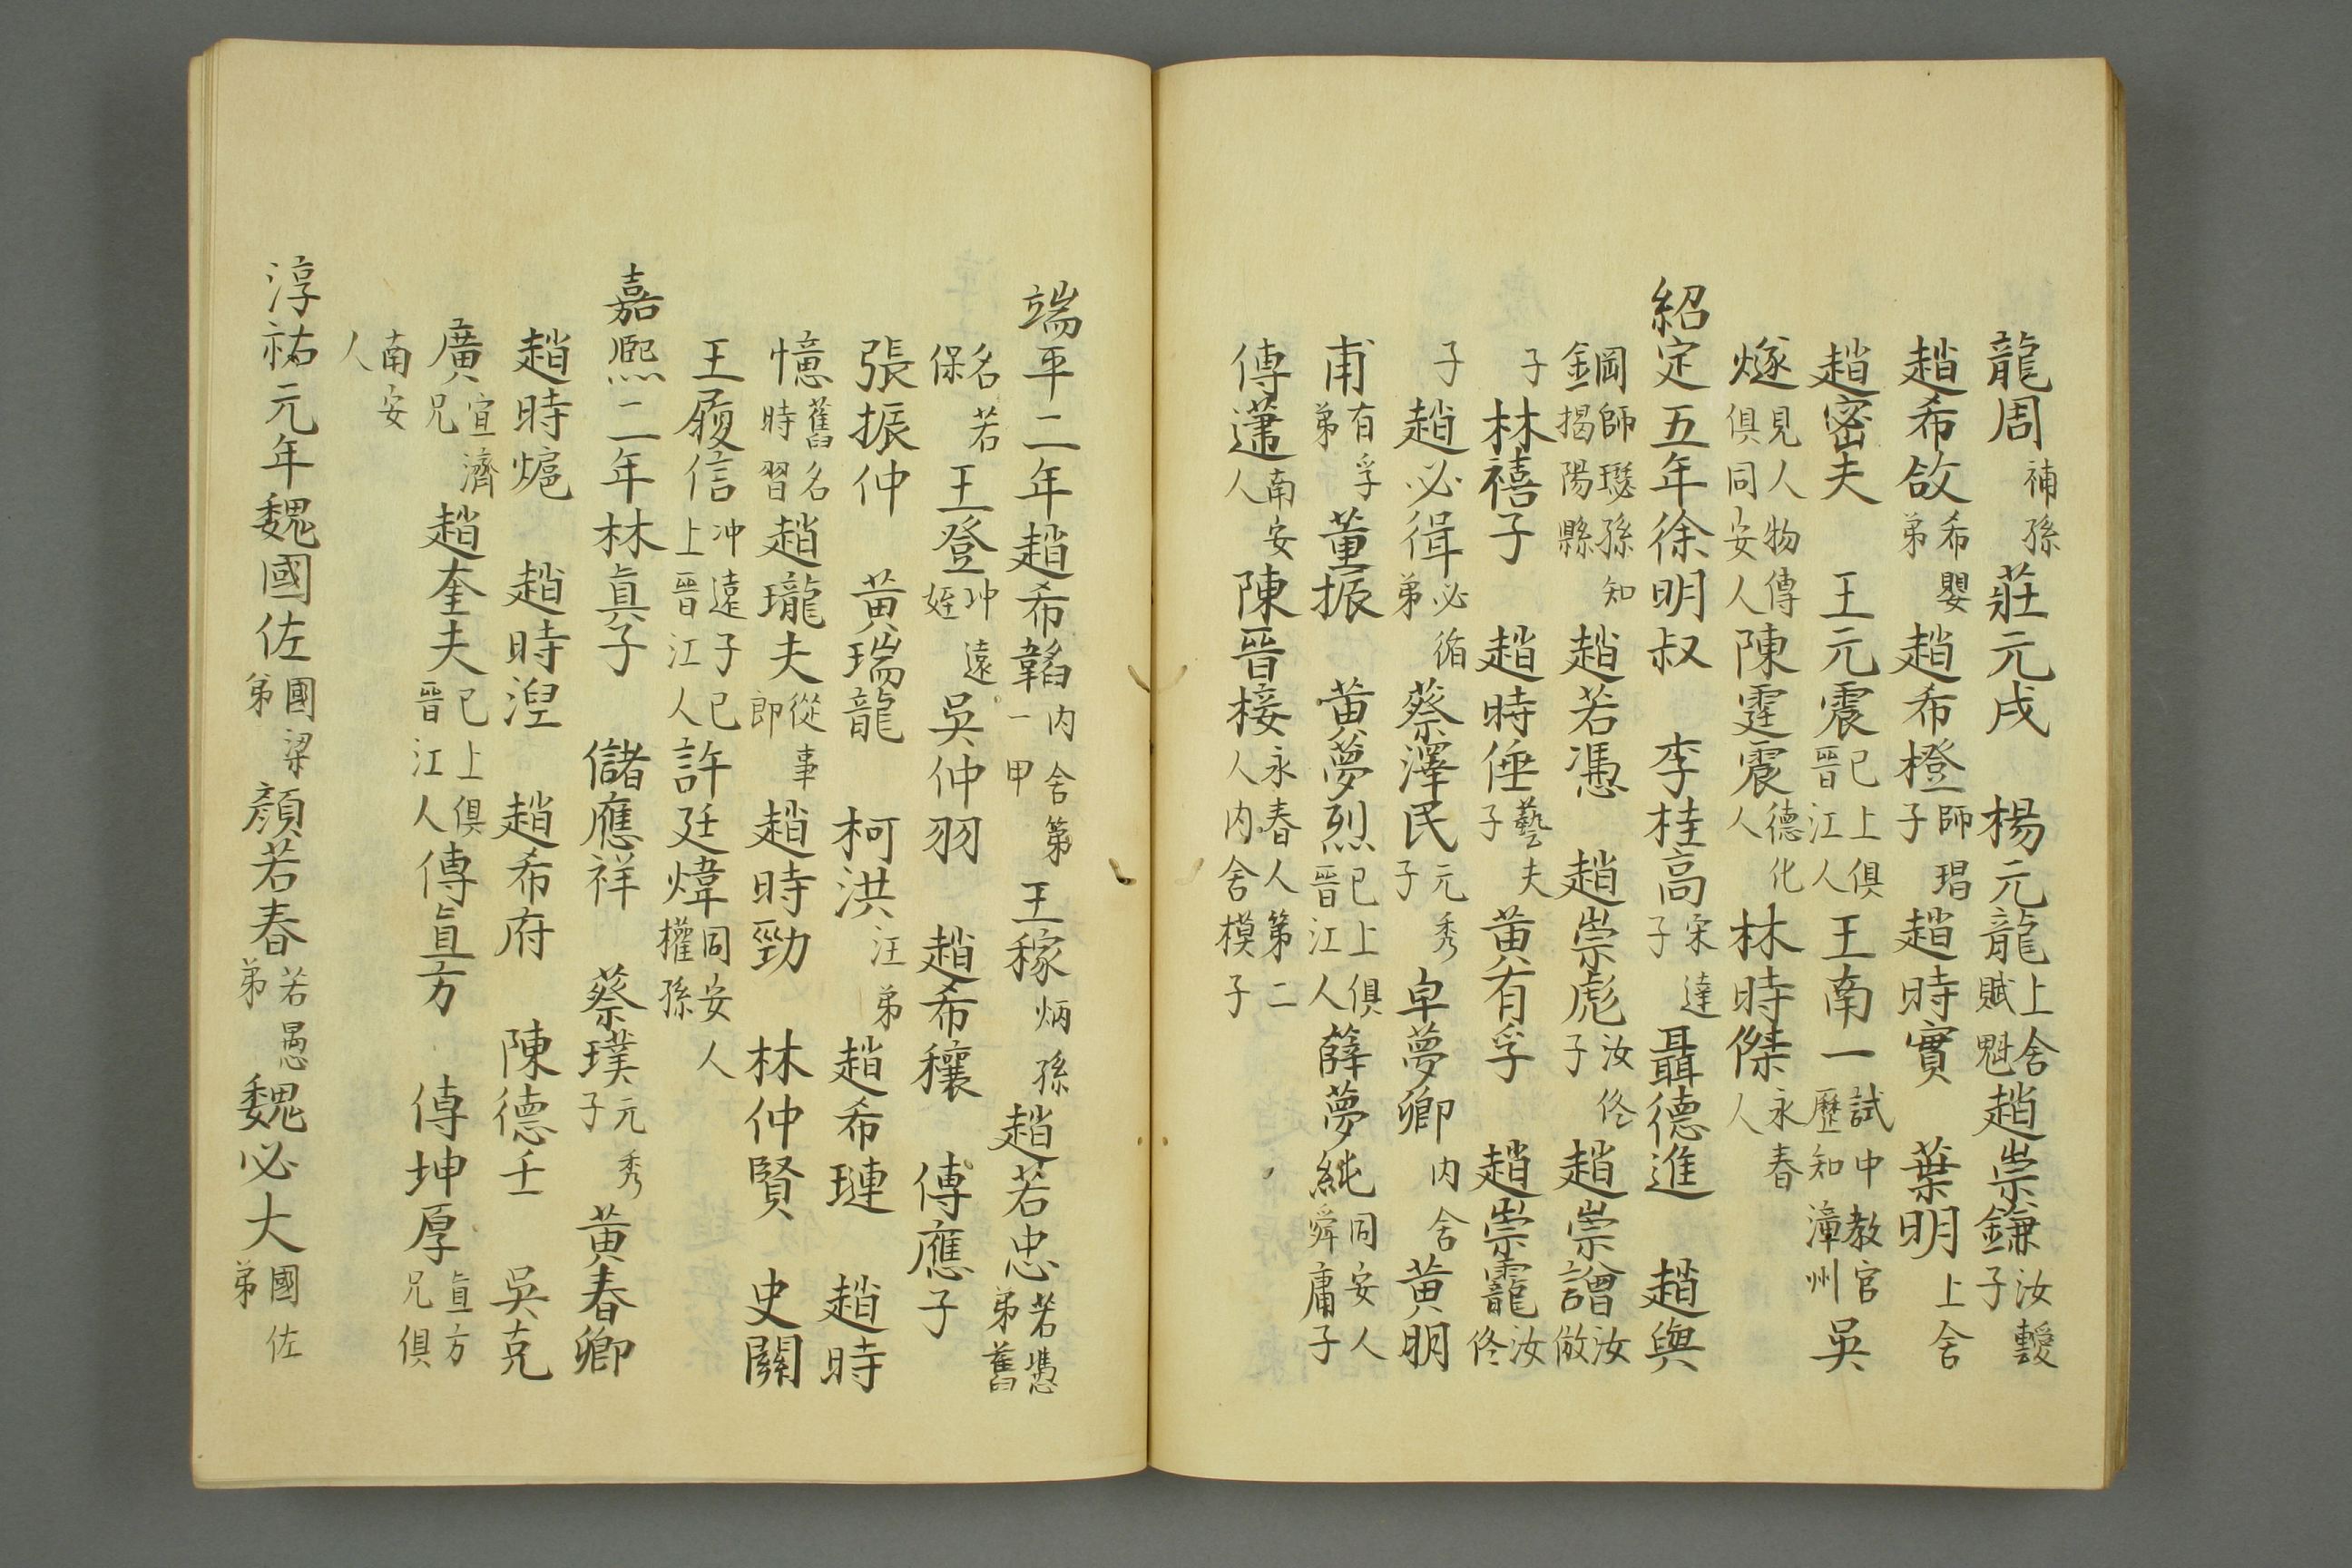 龍周補孫莊元戌楊元龍上舍賦魁趙崇鎌汝靉子
趙希敆希嬰弟趙希橙師琩子趙時實葉明上舍
趙密夫王元震已上俱晉江人王南一試中教官歷知漳州吳
燧見人物傳俱同安人陳霆震德化人林時傑永春人
紹定五年徐明叔李桂高宋達子聶德進趙與
鋼師璱孫知揭陽縣趙若憑趙崇彪汝佟子趙崇譮汝倣
子林禧子趙時倕藝夫子黃有孚趙崇龗汝佟
子趙必徣必循弟蔡澤民元秀子卓夢卿内舍黃明
甫有孚弟董振黃夢烈已上俱晉江人薛夢純同安人舜庸子
傅蓮南安人陳晉椄永春人第二人内舍模子
端平二年趙希韜内舍第一甲王稼炳孫趙若忠若憑弟舊
名若保王登冲遠姪吳仲羽趙希穰傅應子
張振仲黃瑞龍柯洪汪弟趙希璉趙時
憶舊名時習趙瓏夫從事郎趙時勁林仲賢史關
王履信冲遠子已上晉江人許廷煒同安人權孫
嘉熙二年林真子儲應祥蔡璞元秀子黃春卿
趙時熩趙時浧趙希府陳德壬吳克
廣宣濟兄趙奎夫已上俱晉江人傅直方傅坤厚直方兄俱
南安人
淳祐元年魏國佐國梁弟顏若春若愚弟魏必大國佐弟